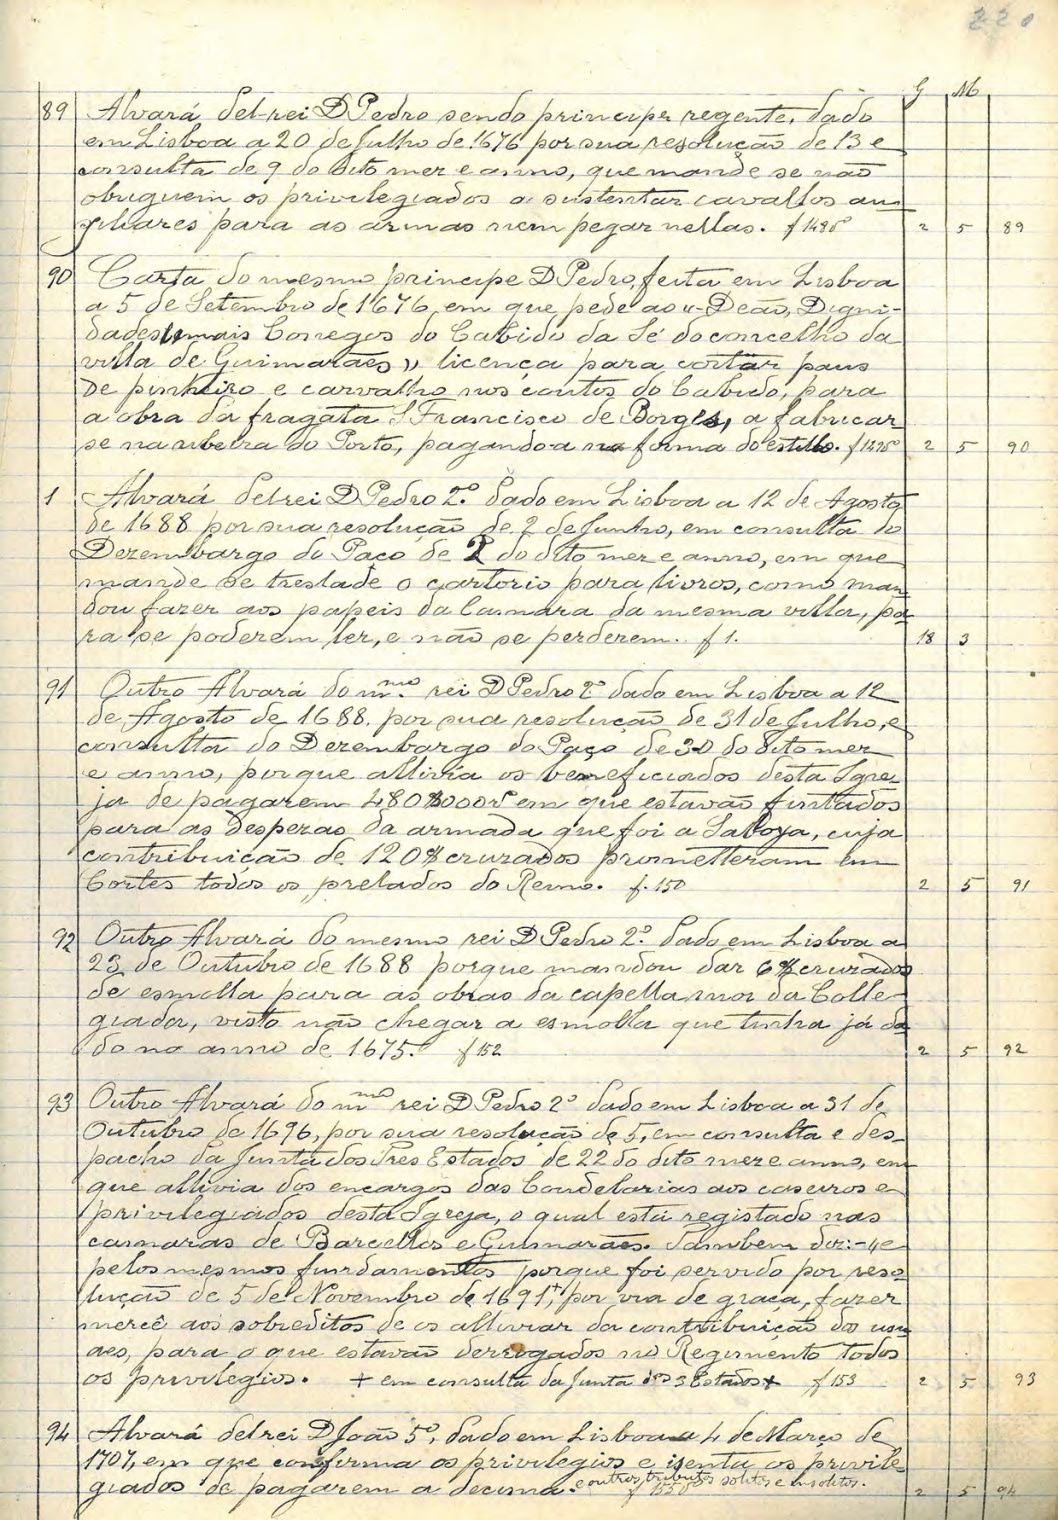 220
G M
89 Alvará del-rei D Pedro sendo principe regente, dado
em Lisboa a 20 de Julho de 1676 por sua resolução de 13 e
consulta de 9 do dito mez e anno, que mande se não
obriguem os privilegiados a sustentar cavallos au-
xiliares para as armas nem pegar nellas. f 149vº 2 5 89
90 Carta do mesmo principe D Pedro, feita em Lisboa
a 5 de Setembro de 1676, em que pede ao «Deão, Digni-
dades, mais Conegos do Cabido da Sé do concelho da
villa de Guimarães», licença para cortar paus
de pinheiro e carvalho nos coutos do Cabido, para
a obra da fragata S Francisco de Borges, a fabricar
se na ribeira do Porto, pagando-a na forma do estillo. f 149vº 2 5 90
1 Alvará del-rei D Pedro 2.º dado em Lisboa a 12 de Agosto
de 1688 por sua resolução de 2 de Junho, em consulta do
Dezembargo do Paço de 2 do dito mez e anno, em que
mande se treslade o cartorio para livros, como man-
dou fazer aos papeis da Camara da mesma villa, pa-
ra se poderem ler, e não se perderem. f 1. 18 3
91 Outro Alvará do m.mo rei D Pedro 2º dado em Lisboa a 12
de Agosto de 1688. por sua resolução de 31 de Julho, e
consulta do Dezembargo do Paço de 30 do dito mez
e anno, porque allivia os beneficiados desta Igre-
ja de pagarem 480$000rs em que estavão fintados
para as despezas da armada que foi a Saboya, cuja
contribuição de 120$ cruzados prometteram em
Cortes todos os prelados do Reino. f. 150 2 5 91
92 Outro Alvará do mesmo rei D Pedro 2.º dado em Lisboa a
23 de Outubro de 1688 porque mandou dar 6$ cruzados
de esmolla para as obras da capella mor da Colle-
giada, visto não chegar a esmolla que tinha já da-
do no anno de 1675. f 152 2 5 92
93 Outro Alvará do mmo rei D Pedro 2º dado em Lisboa a 31 de
Outubro de 1696, por sua resolução de 5, em consulta e des-
pacho da Junta dos Tres Estados de 22 do dito mez e anno, em
que allivia dos encargos das Coudelarias aos caseiros e
privilegiados desta Igreja, o qual está registado nas
camaras de Barcellos e Guimarães. Tambem diz:-«e
pelos mesmos fundamentos porque foi servido por reso-
lução de 5 de Novembro de 1691,+ por via de graça, fazer
mercê aos sobreditos de os alliviar da contribuição dos usu-
aes, para o que estavão derrogados no Regimento todos
os privilegios. + em consulta da Junta dos 3 Estados + f 153 2 5 93
94 Alvará del rei D João 5º, dado em Lisboa a 4 de Março de
1707, em que confirma os privilegios e isenta os privile-
giados de pagarem a decima. e outros tributos solitos e insolitos. f 155vº 2 5 94